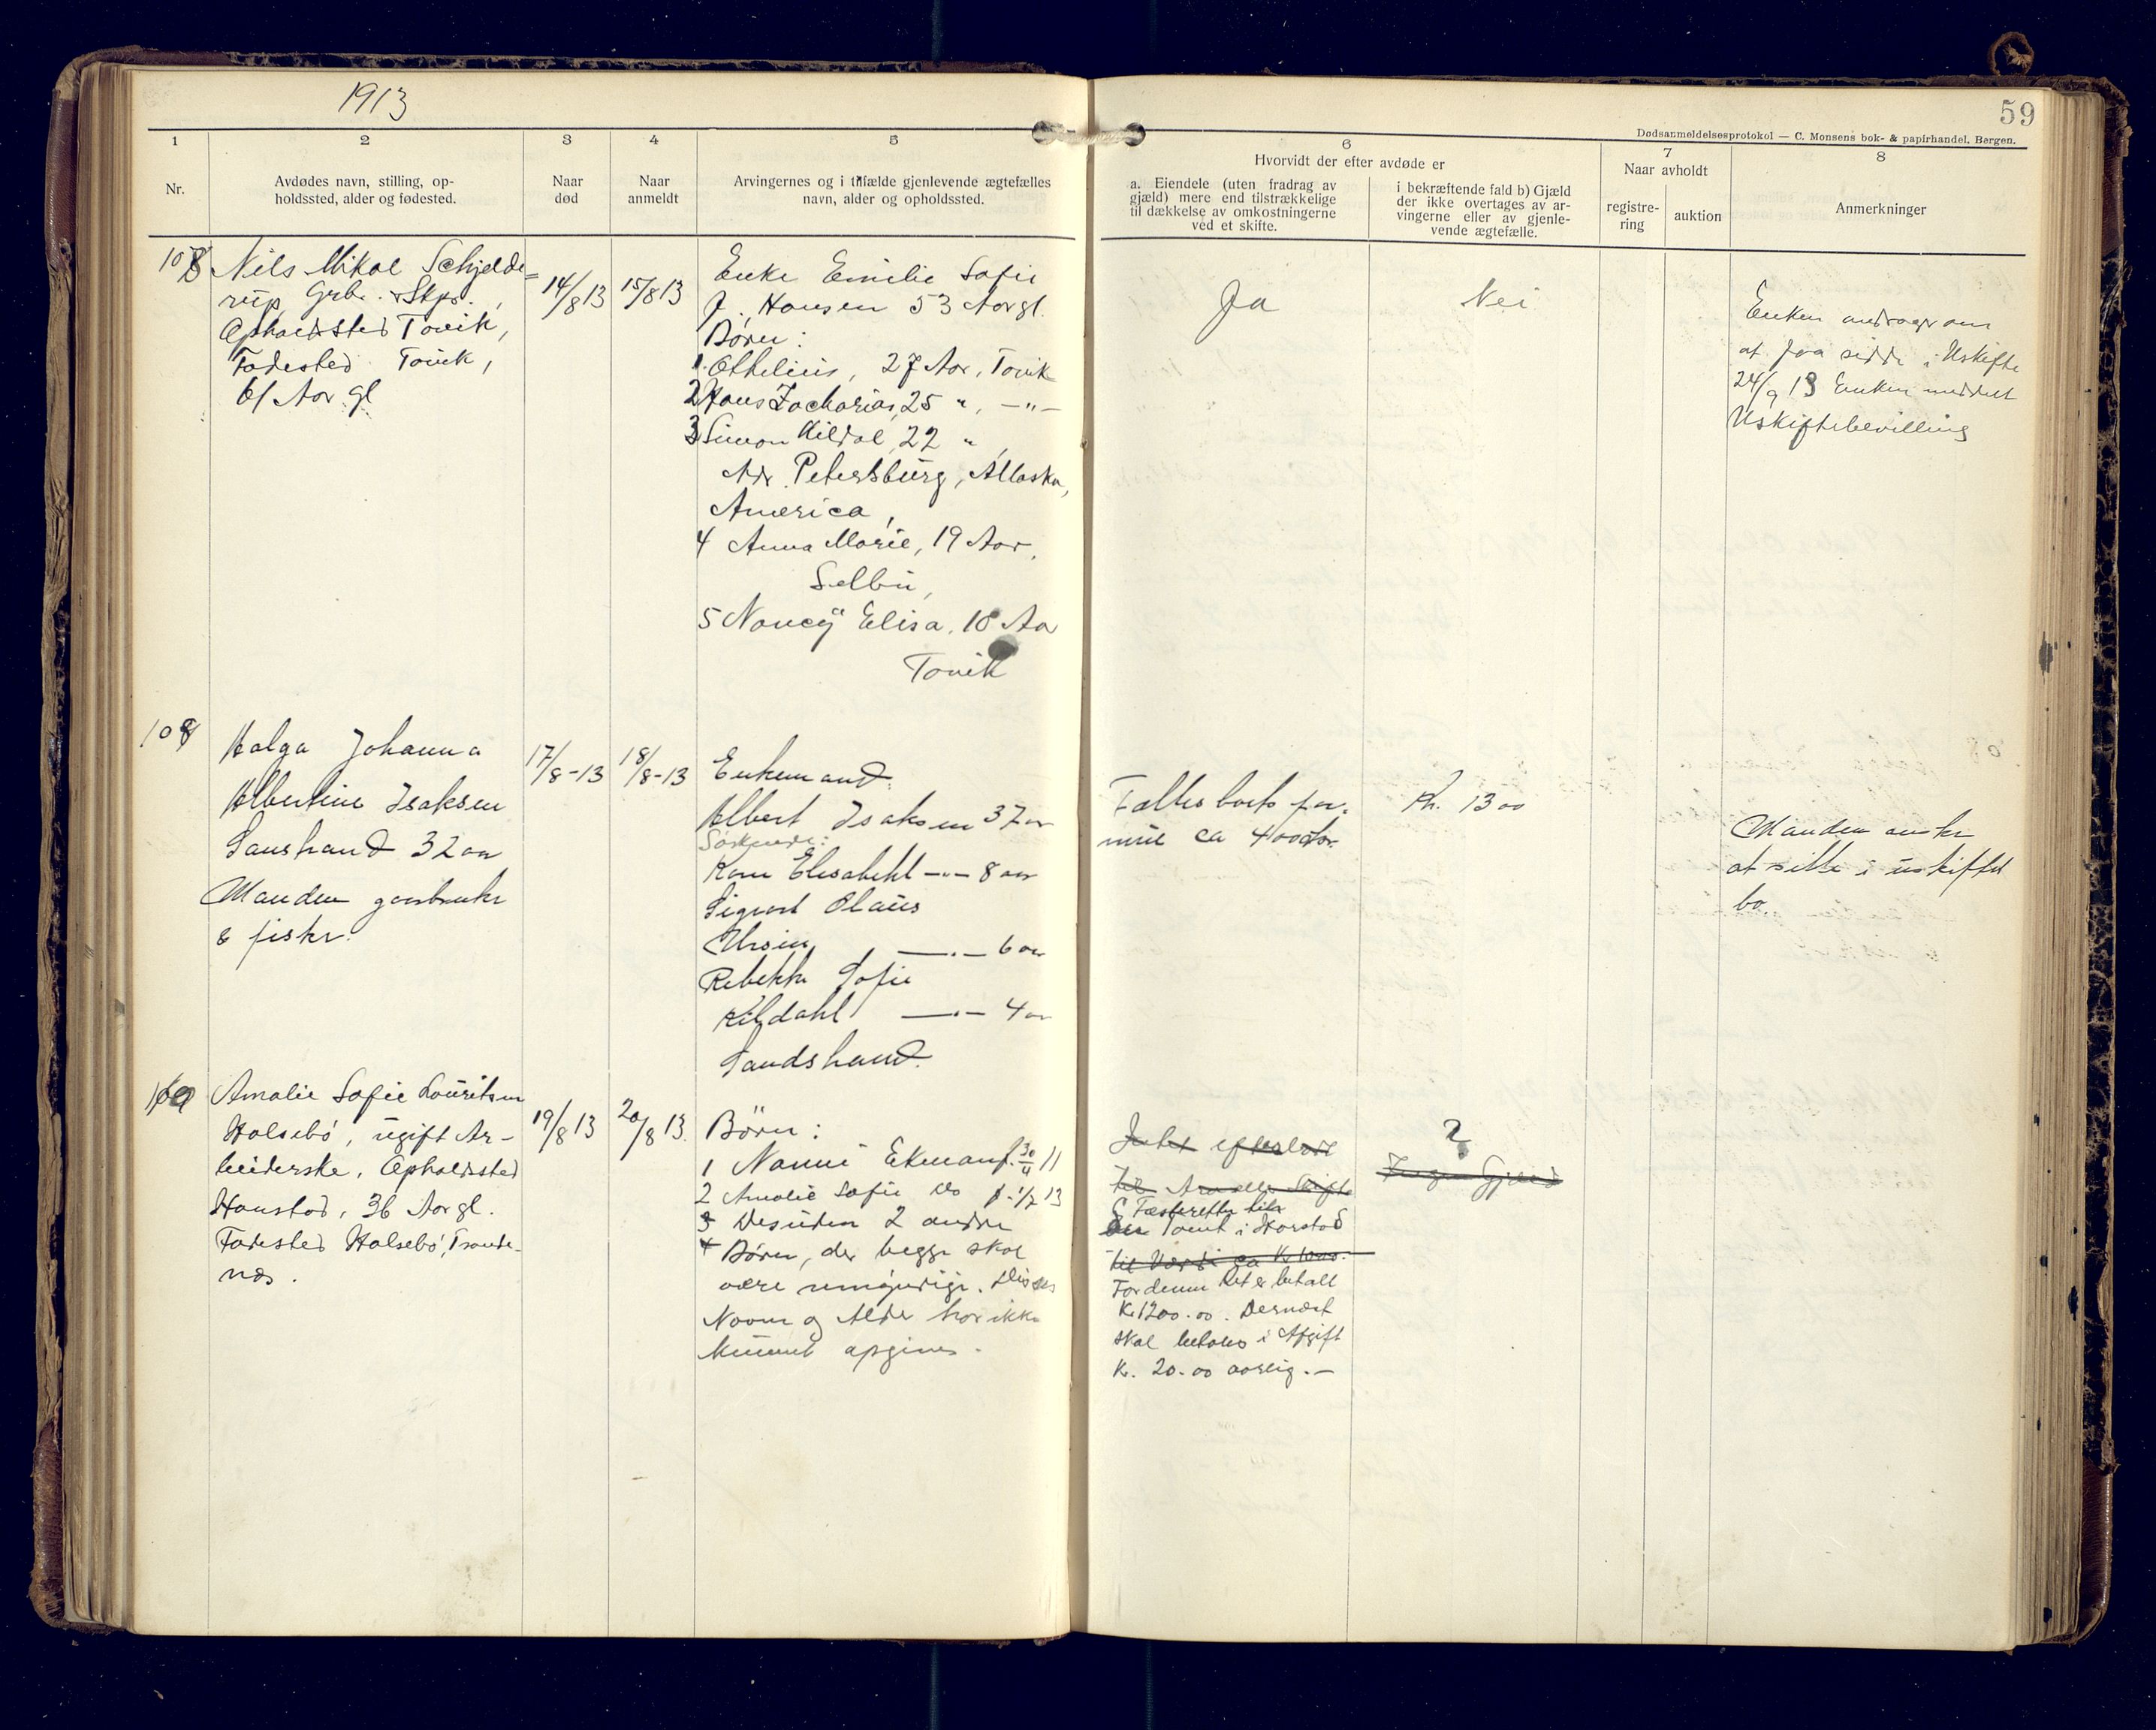 1913
59
Dødsanmeldelsesprotokol — C. Monsens bok- & papirhandel, Bergen.
1
2
3
4
5
6
7
8
Nr.
Avdødes navn, stilling, op-
holdssted, alder og fødested.
Naar
død
Naar
anmeldt
Arvingernes og i tilfælde gjenlevende ægtefælles
navn, alder og opholdssted.
Hvorvidt der efter avdøde er
a. Eiendele (uten fradrag av
gjæld) mere end tilstrækkelige
til dækkelse av omkostningerne
ved et skifte.
i bekræftende fald b) Gjæld
der ikke overtages av ar-
vingerne eller av gjenle-
vende ægtefælle.
Naar avholdt
registre-
ring
auktion
Anmerkninger
Nils Mikal Schjelde-
rup, Grbr. & Skpr.,
Opholdssted Tovik,
Fødested Tovik,
61 Aar gl.
14/8 13
15/8 13
Enke Emilie Sofie
f. Hansen 53 Aar gl.
Børn:
1. Othelius, 27 Aar, Tovik
2 Hans Zacharias, 25 " , —"—
3 Simon Kildal, 22 "
Adr. Petersburg, Allaska,
America,
4 Anna Marie, 19 Aar,
Selbu,
5 Nancÿ Elisa, 18 Aar
Tovik
Ja
Nei
Enken andrager om
at faa sidde i Uskifte
24/9 13 Enken meddelt
Uskiftebevilling
108
Helga Johanna
Albertine Isaksen
Sanstrand 32 aar
Manden gaardbruker
& fisker.
17/8-13
18/8-13
Enkemand
Albert Isaksen 37 aar
Søskende:
Karen Elisabeht —"— 8 aar
Sigvart Olaus
Ursin —"— 6 aar
Rebekka Sofie
Kildahl —"— 4 aar
Sandstrand.
Fælles boets for-
mue ca 4000 kr.
Kr. 1300
Manden ønsker
at sitte i uskiftet
bo.
109
Amalie Sofie Lauritsen
Halsebø, ugift Ar-
beiderske, Opholdssted
Harstad, 36 Aar gl.
Fødested Halsebø, Tronde-
næs.
19/8 13
20/8 13
Børn:
1 Nanni Ekman f. 30/4 11
2 Amalie Sofie do f. 1/7 13
3 Desuden 2 andre
4 Børn, der begge skal
være umyndige. Disses
Navn og Alder har ikke
kunnet opgives.
Intet efterladt
til Arv eller Skifte
Fæsteretten til
en Tomt i Harstad
til Værdi ca Kr
For denne Ret er betalt
Kr 1200.00. Dernæst
skal betales i Afgift
Kr. 20.00 aarlig.—
?
Ingen Gjæld